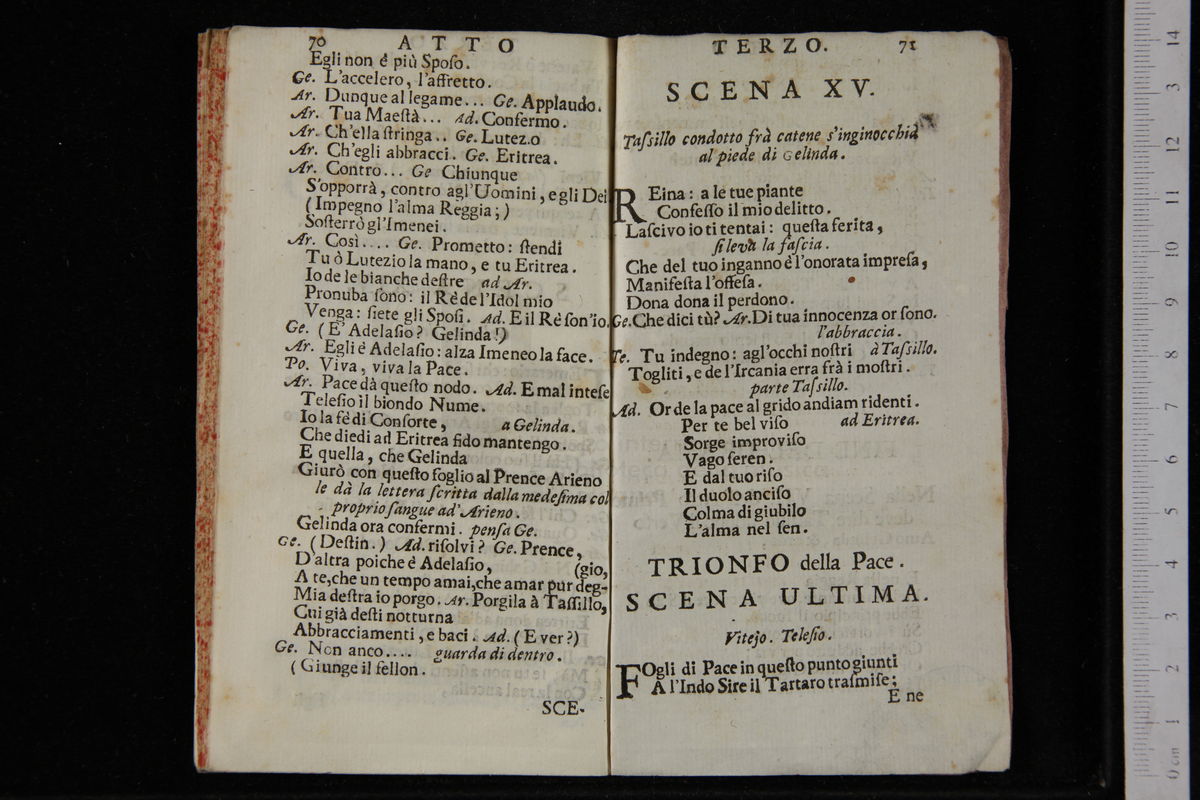 70 ATTO
Egli non è più Sposo.
Ge. L'accelero, l'affretto.
Ar. Dunque al legame... Ge. Applaudo.
Ar. Tua Maestà... Ad. Confermo.
Ar. Ch'ella stringa.. Ge. Lutezo
Ar. Ch'egli abbracci. Ge. Eritrea.
Ar. Contro... Ge Chiunque
S'opporrà, contro agl'Uomini, e gli Dei
(Impegno l'alma Reggia;)
Sosterrò gl'Imenei.
Ar. Così.... Ge. Prometto: stendi
Tu ò Lutezio la mano, e tu Eritrea.
Io de le bianche destre ad Ar.
Pronuba sono: il Rè de l'Idol mio
Venga: siete gli Sposi. Ad. E il Rè son'io.
Ge. (E' Adelasio? Gelinda!)
Ar. Egli è Adelasio: alza Imeneo la face.
Po. Viva, viva la Pace.
Ar. Pace dà questo nodo. Ad. E mal intese
Telesio il biondo Nume.
Io la fè di Consorte, a Gelinda.
Che diedi ad Eritrea fido mantengo.
E quella, che Gelinda
Giurò con questo foglio al Prence Arieno
le dà la lettera scritta dalla medesima col
proprio sangue ad' Arieno.
Gelinda ora confermi. pensa Ge.
Ge. (Destin.) Ad. risolvi? Ge. Prence,
D'altra poiche è Adelasio, (gio,
A te, che un tempo amai, che amar pur deg-
Mia destra io porgo. Ar. Porgila à Tassillo,
Cui già desti notturna
Abbracciamenti, e baci. Ad. (E ver?)
Ge. Non anco.... guarda di dentro.
(Giunge il fellon.
SCE-
TERZO. 71
SCENA XV.
Tassillo condotto frà catene s'inginocchia
al piede di Gelinda.
REina: a le tue piante
Confesso il mio delitto.
Lascivo io ti tentai: questa ferita,
si leva la fascia.
Che del tuo inganno è l'onorata impresa,
Manifesta l'offesa.
Dona dona il perdono.
Ge. Che dici tù? Ar. Di tua innocenza or sono.
l'abbraccia.
Te. Tu indegno: agl'occhi nostri à Tassillo.
Togliti, e de l'Ircania erra frà i mostri.
parte Tassillo.
Ad. Or de la pace al grido andiam ridenti.
Per te bel viso ad Eritrea.
Sorge improviso
Vago seren.
E dal tuo riso
Il duolo anciso
Colma di giubilo
L'alma nel sen.
TRIONFO della Pace.
SCENA ULTIMA.
Vitejo. Telesio.
FOgli di Pace in questo punto giunti
A l'Indo Sire il Tartaro trasmise;
E ne